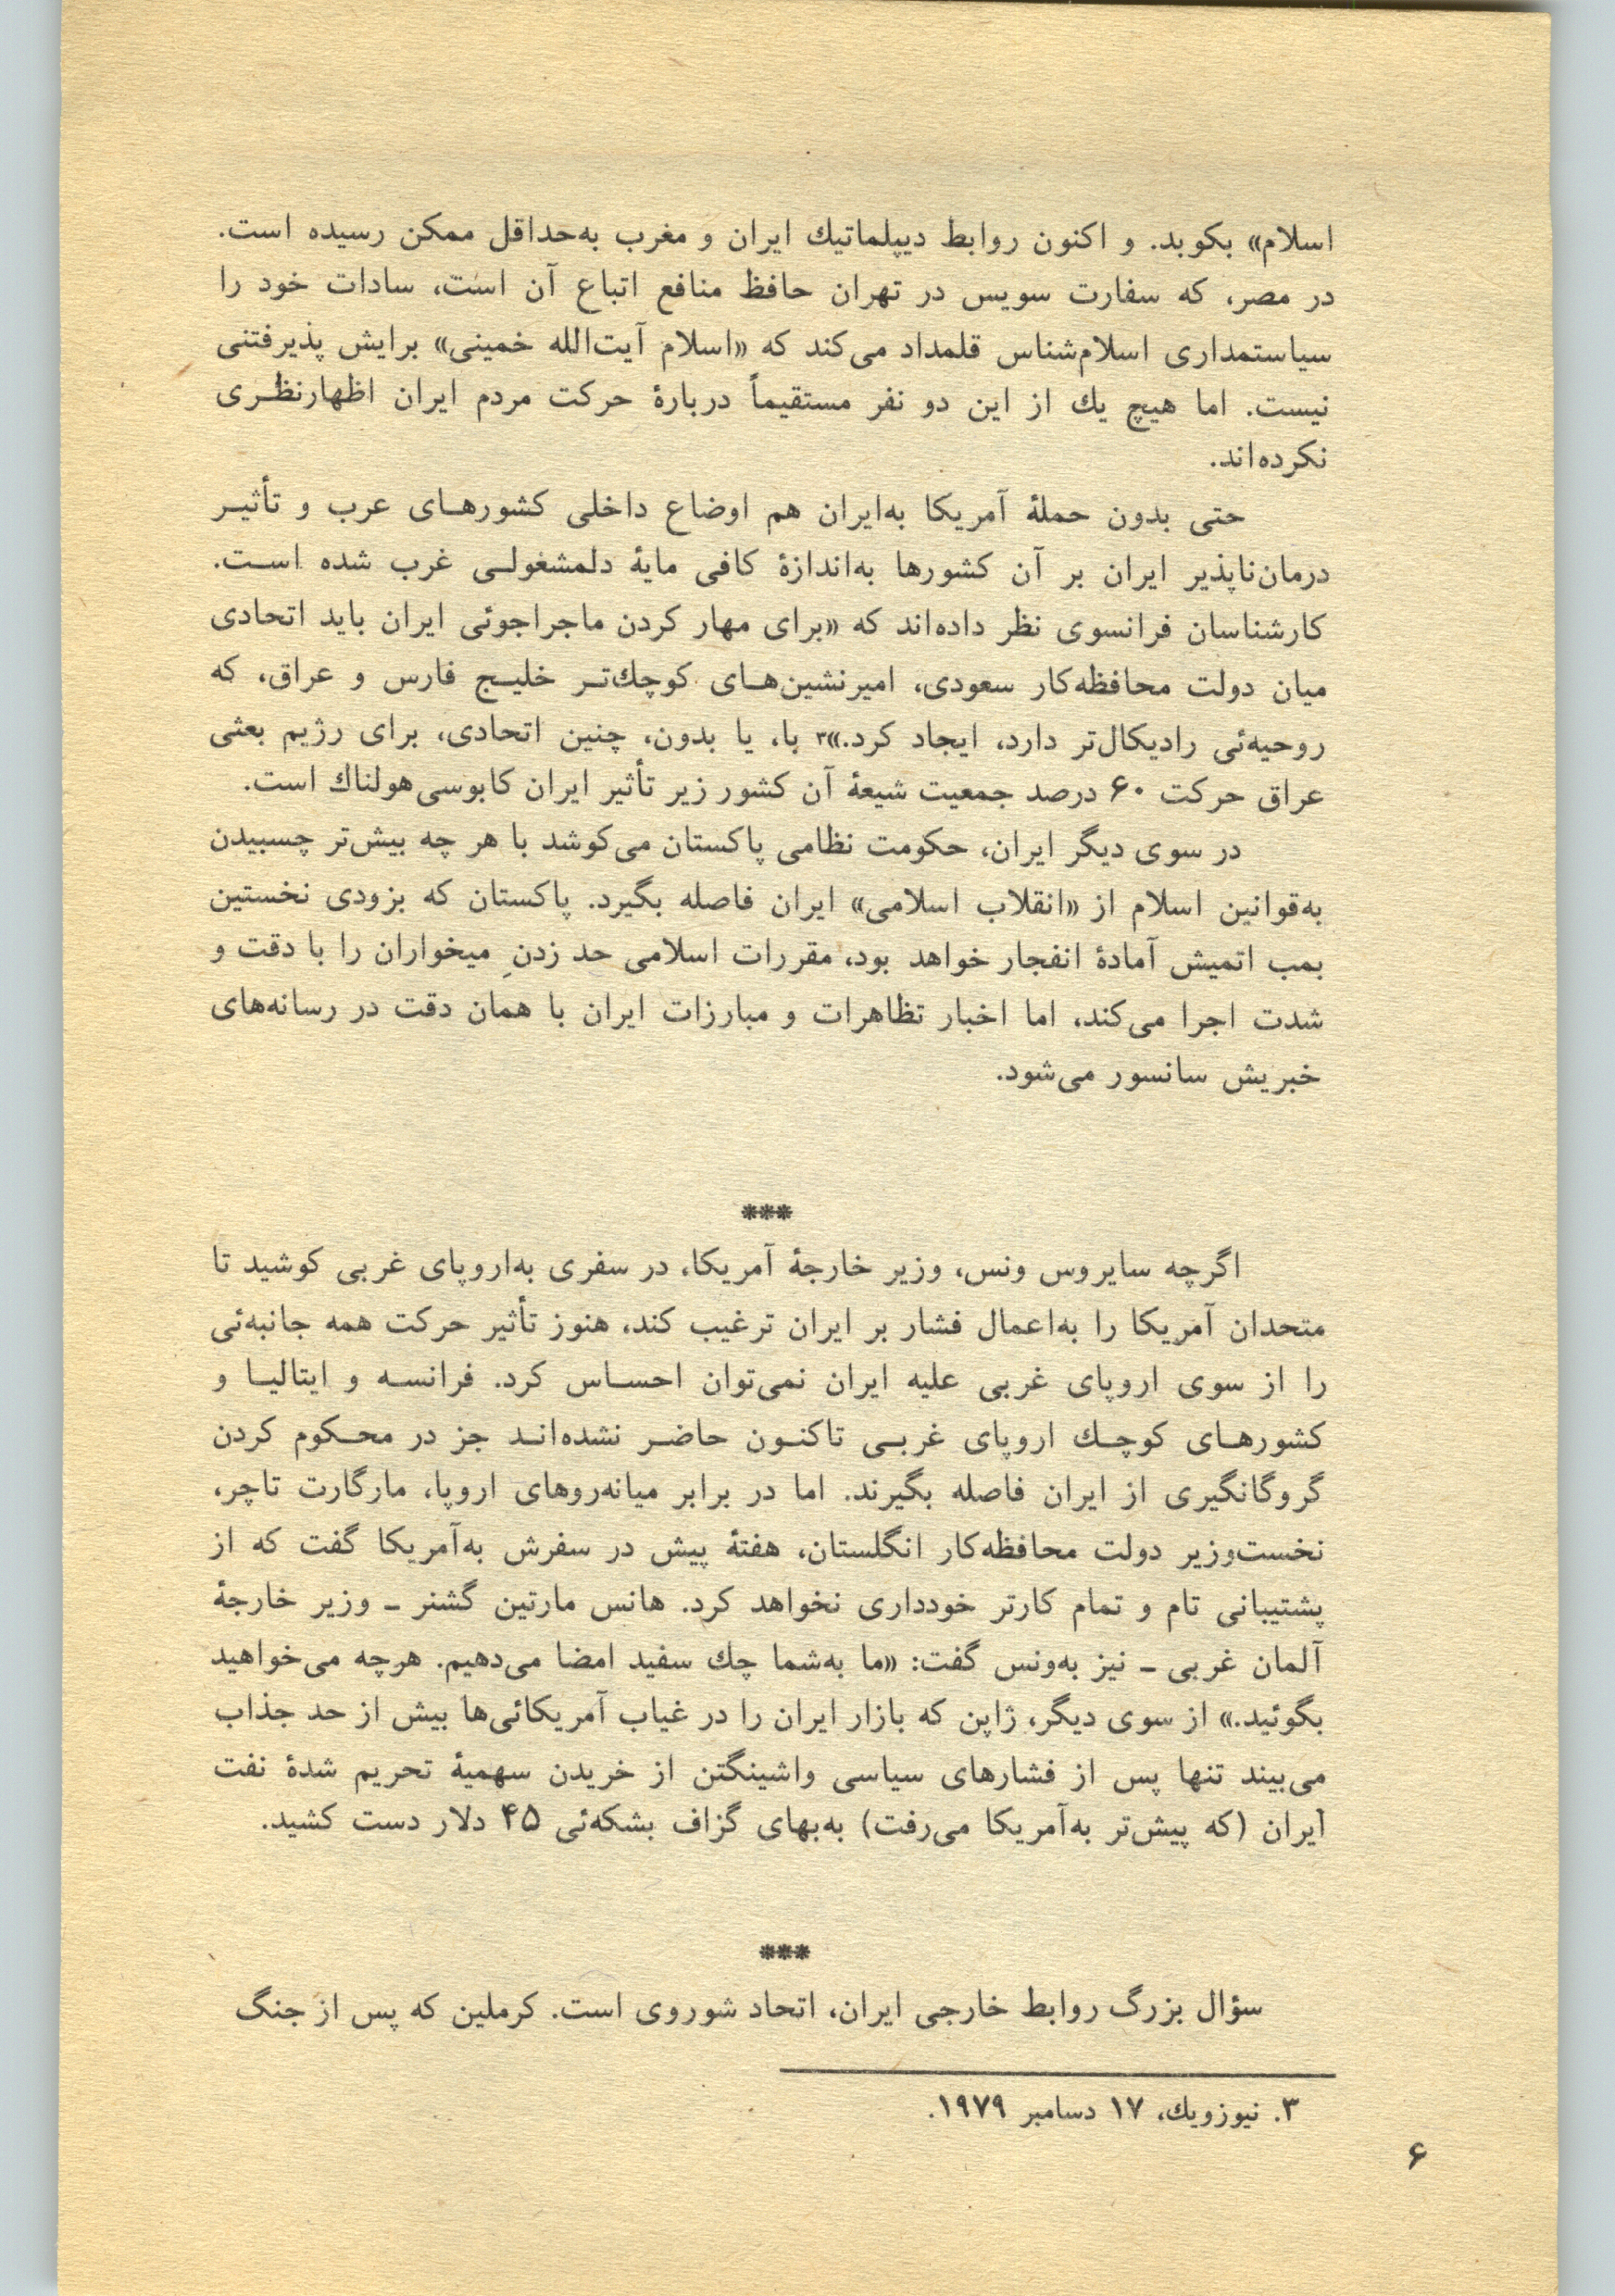 اسلام» بکوبد. و اکنون روابط دیپلماتیك ایران و مغرب به‌حداقل ممکن رسیده است.
در مصر، که سفارت سویس در تهران حافظ منافع اتباع آن است، سادات خود را
سیاستمداری اسلام‌شناس قلمداد می‌کند که «اسلام آیت‌الله خمینی» برایش پذیرفتنی
نیست. اما هیچ یك از این دو نفر مستقیماً دربارهٔ حرکت مردم ایران اظهارنظری
نکرده‌اند.
حتی بدون حملهٔ آمریکا به‌ایران هم اوضاع داخلی کشورهای عرب و تأثیر
درمان‌ناپذیر ایران بر آن کشورها به‌اندازهٔ کافی مایهٔ دلمشغولی غرب شده است.
کارشناسان فرانسوی نظر داده‌اند که «برای مهار کردن ماجراجوئی ایران باید اتحادی
میان دولت محافظه‌کار سعودی، امیرنشین‌های کوچك‌تر خلیج فارس و عراق، که
روحیه‌ئی رادیکال‌تر دارد، ایجاد کرد.»۳ با، یا بدون، چنین اتحادی، برای رژیم بعثی
عراق حرکت ۶۰ درصد جمعیت شیعهٔ آن کشور زیر تأثیر ایران کابوسی هولناك است.
در سوی دیگر ایران، حکومت نظامی پاکستان می‌کوشد با هر چه بیش‌تر چسبیدن
به‌قوانین اسلام از «انقلاب اسلامی» ایران فاصله بگیرد. پاکستان که بزودی نخستین
بمب اتمیش آمادهٔ انفجار خواهد بود، مقررات اسلامی حد زدنِ میخواران را با دقت و
شدت اجرا می‌کند، اما اخبار تظاهرات و مبارزات ایران با همان دقت در رسانه‌های
خبریش سانسور می‌شود.
***
اگرچه سایروس ونس، وزیر خارجهٔ آمریکا، در سفری به‌اروپای غربی کوشید تا
متحدان آمریکا را به‌اعمال فشار بر ایران ترغیب کند، هنوز تأثیر حرکت همه جانبه‌ئی
را از سوی اروپای غربی علیه ایران نمی‌توان احساس کرد. فرانسه و ایتالیا و
کشورهای کوچك اروپای غربی تاکنون حاضر نشده‌اند جز در محکوم کردن
گروگانگیری از ایران فاصله بگیرند. اما در برابر میانه‌روهای اروپا، مارگارت تاچر،
نخست‌وزیر دولت محافظه‌کار انگلستان، هفتهٔ پیش در سفرش به‌آمریکا گفت که از
پشتیبانی تام و تمام کارتر خودداری نخواهد کرد. هانس مارتین گشنر ـ وزیر خارجهٔ
آلمان غربی ـ نیز به‌ونس گفت: «ما به‌شما چك سفید امضا می‌دهیم. هرچه می‌خواهید
بگوئید.» از سوی دیگر، ژاپن که بازار ایران را در غیاب آمریکائی‌ها بیش از حد جذاب
می‌بیند تنها پس از فشارهای سیاسی واشینگتن از خریدن سهمیهٔ تحریم شدهٔ نفت
ایران (که پیش‌تر به‌آمریکا می‌رفت) به‌بهای گزاف بشکه‌ئی ۴۵ دلار دست کشید.
***
سؤال بزرگ روابط خارجی ایران، اتحاد شوروی است. کرملین که پس از جنگ
۳. نیوزویك، ۱۷ دسامبر ۱۹۷۹.
۶